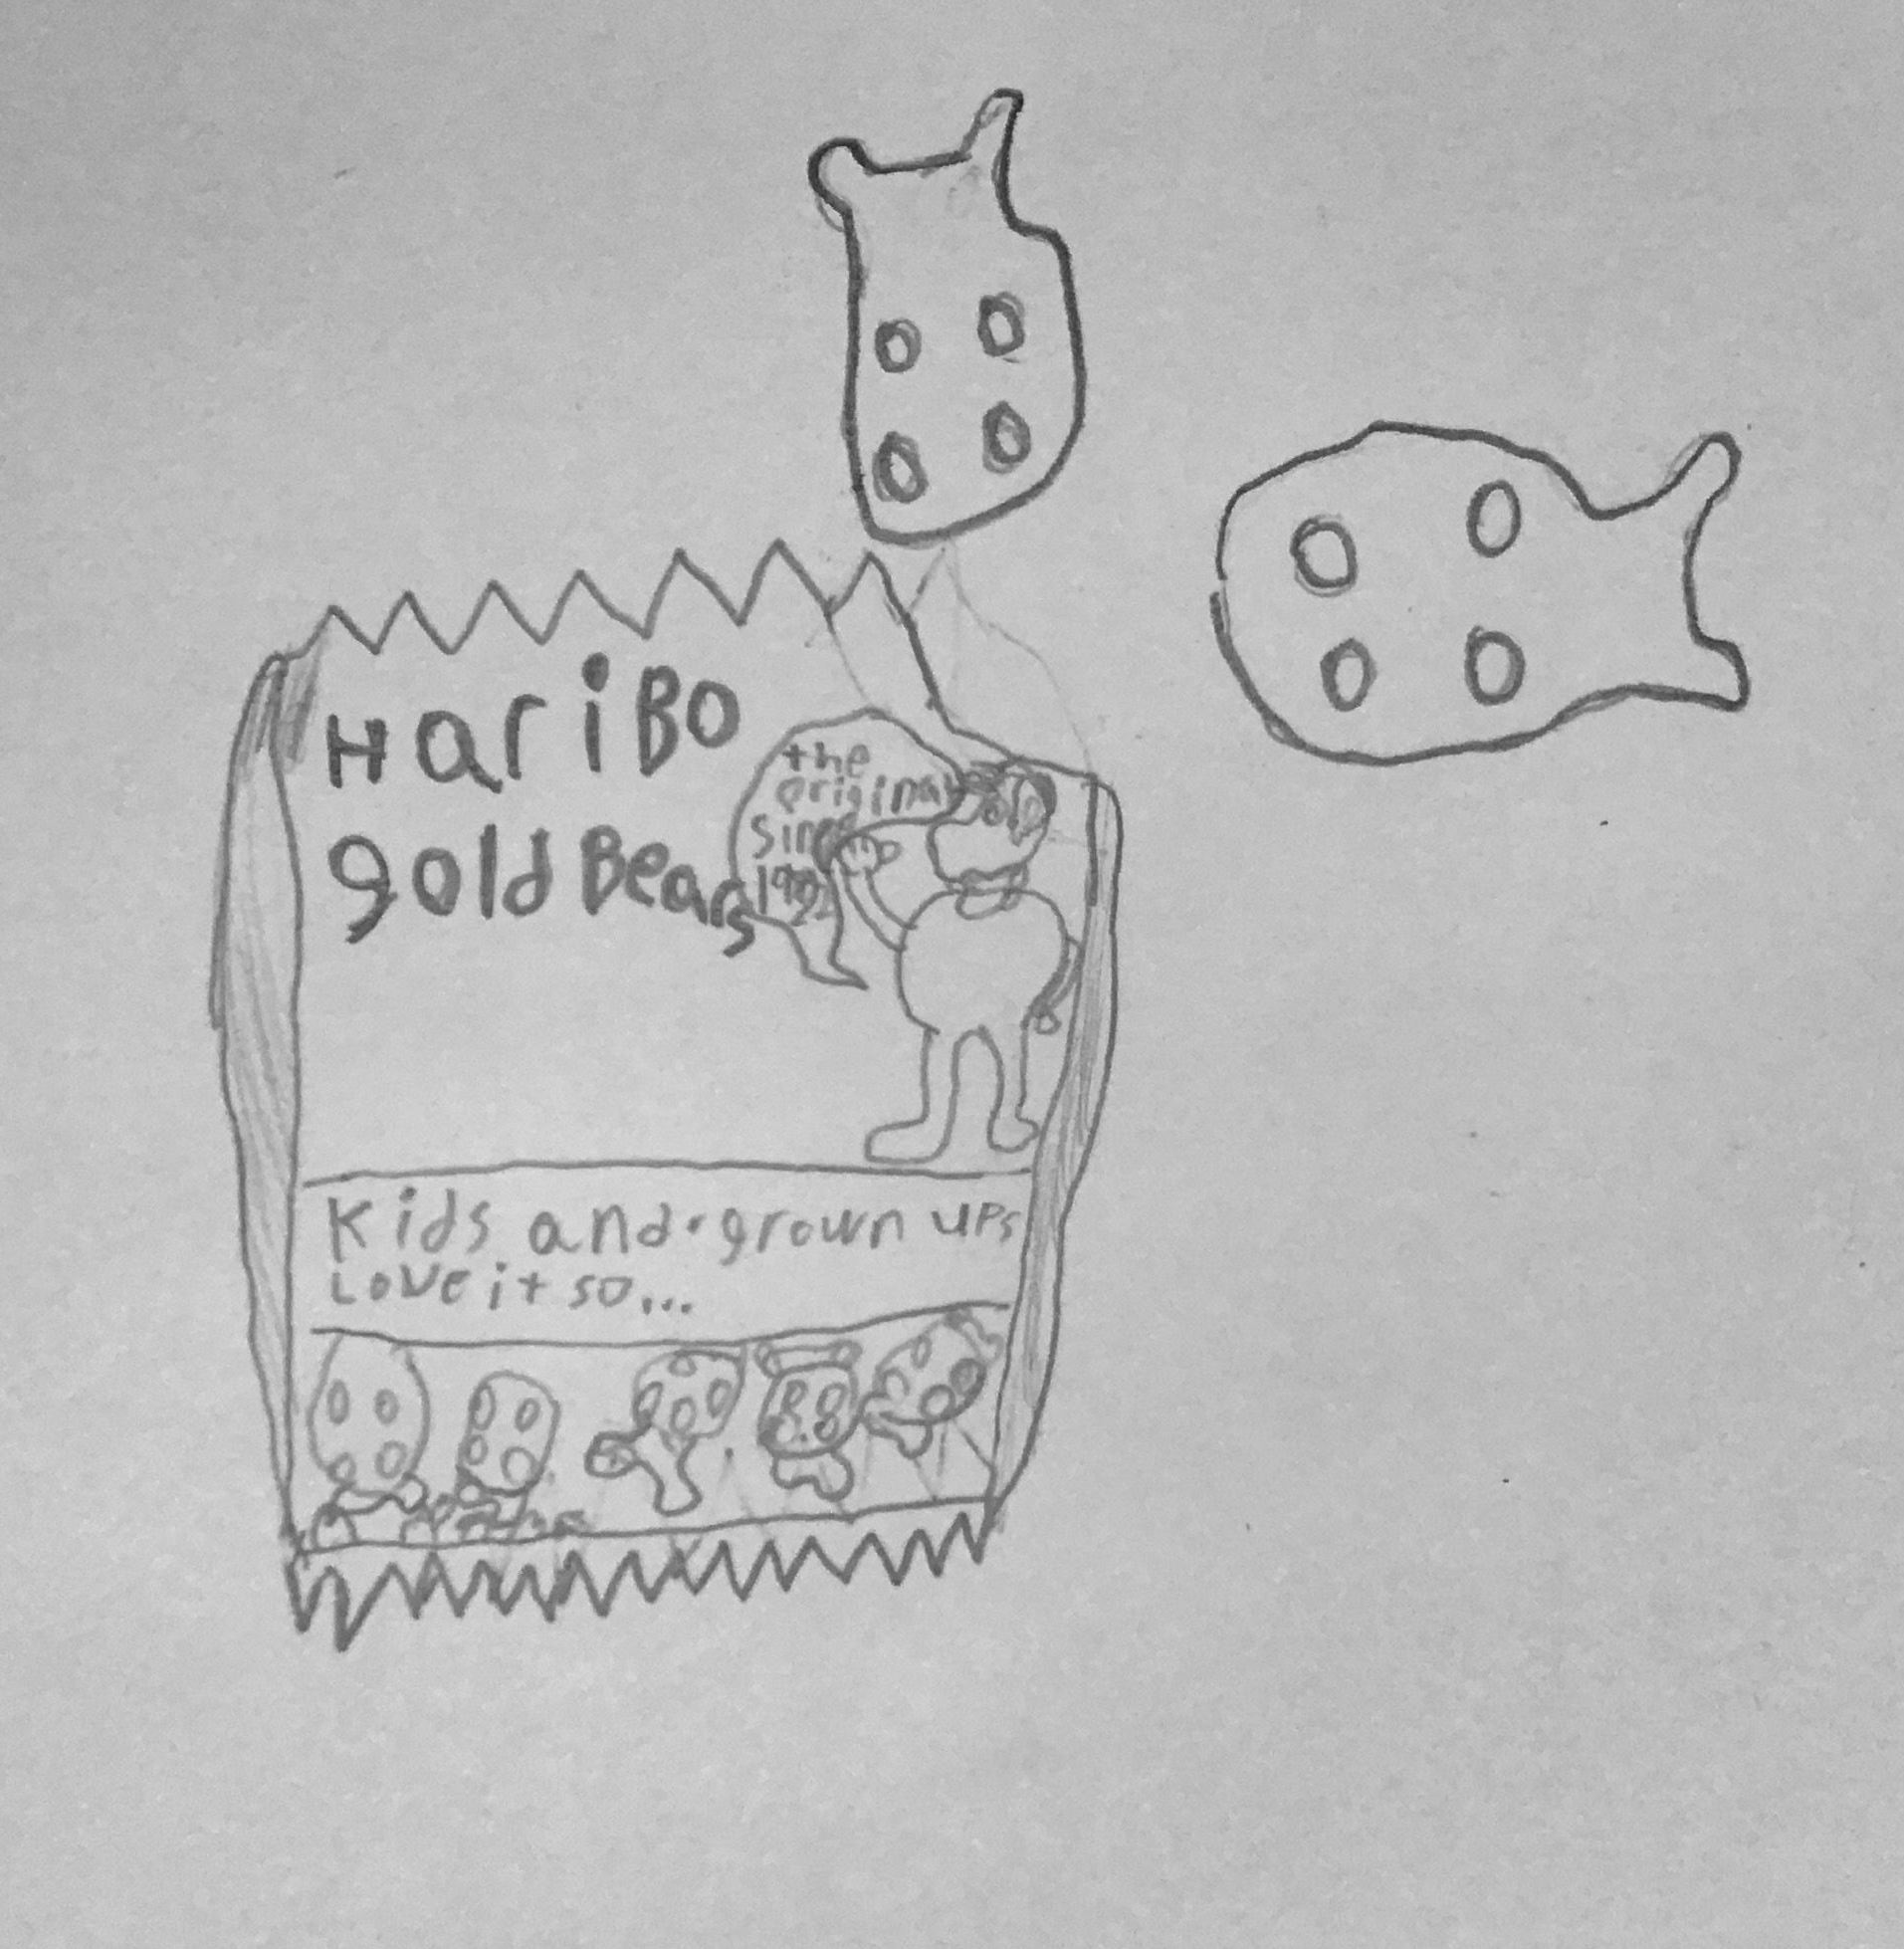 HariBO
gold Bears
the
original
since
Kids and grown ups
Love it so...